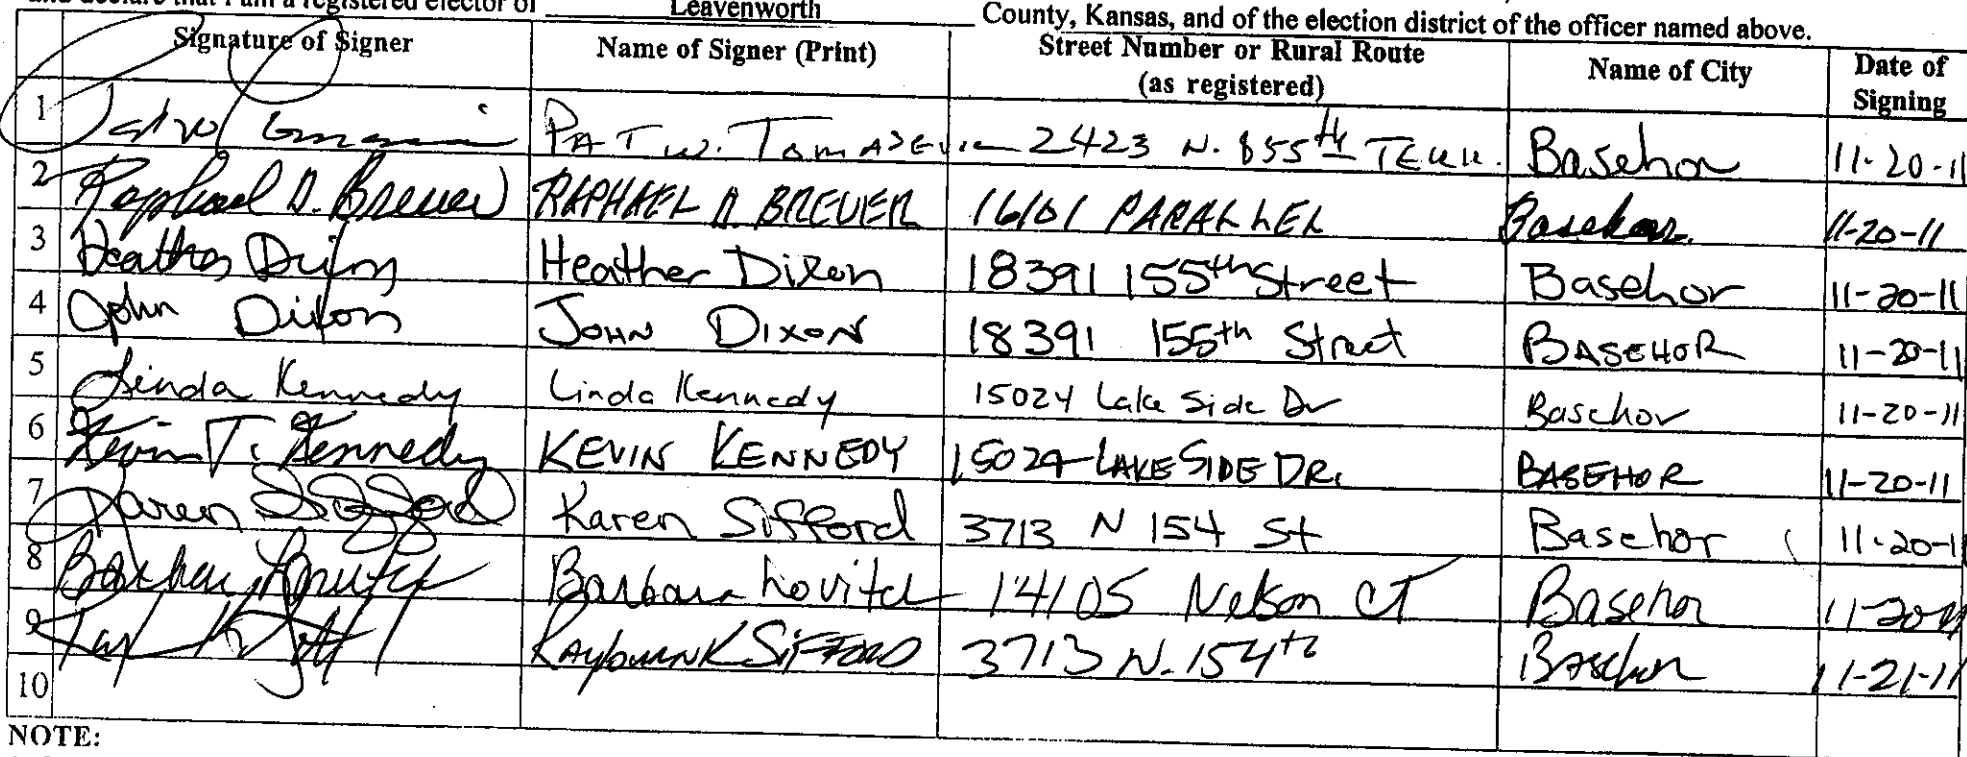 and declare that I am a registered elector of Leavenworth County, Kansas, and of the election district of the officer named above.
Signature of Signer Name of Signer (Print) Street Number or Rural Route (as registered) Name of City Date of Signing
1 PAT W. 2423 N. 155th TERR. Basehor 11-20-11
2 Raphael A. Breuer RAPHAEL A. BREUER 16101 PARALLEL Basehor 11-20-11
3 Heather Dixon Heather Dixon 18391 155th Street Basehor 11-20-11
4 John Dixon JOHN DIXON 18391 155th Street BASEHOR 11-20-11
5 Linda Kennedy Linda Kennedy 15024 Lake Side Dr Basehor 11-20-11
6 Kevin T. Kennedy KEVIN KENNEDY 15024 LAKE SIDE DR. BASEHOR 11-20-11
7 Karen Sifford Karen Sifford 3713 N 154 St Basehor 11-20-11
8 Barbara Lovitch 14105 Nelson CT Basehor 11-20-11
9 Rayburn K SIFFORD 3713 N. 154th Basehor 11-21-11
10
NOTE: